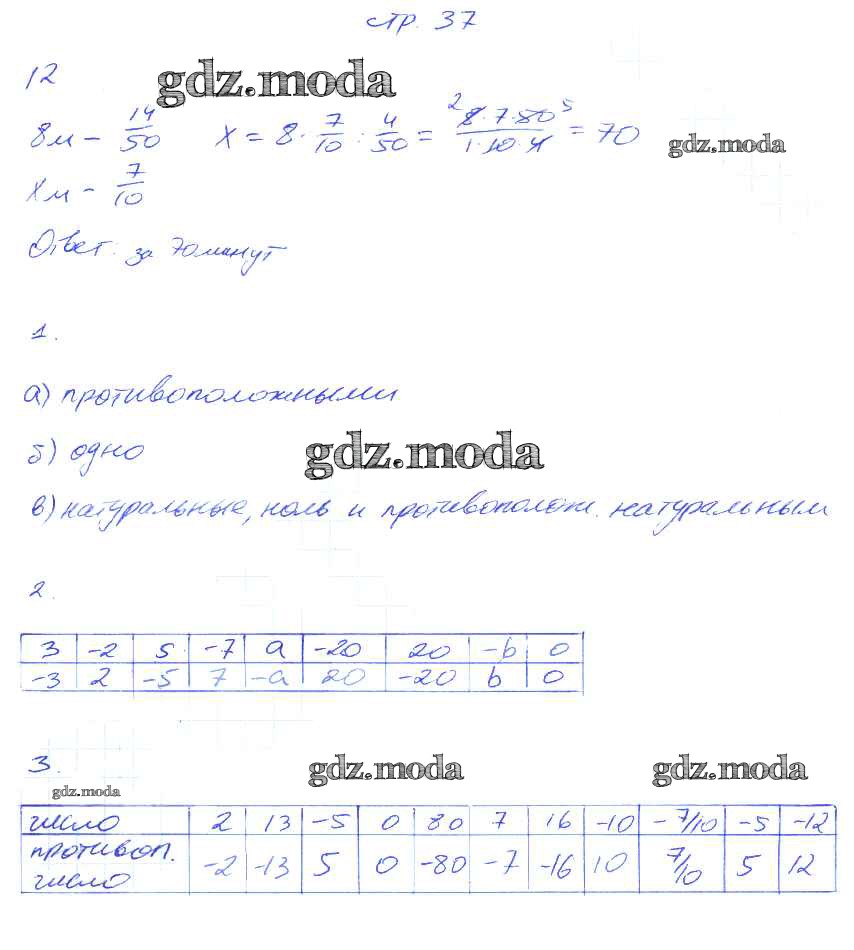 стр. 37
12
gdz.moda
8м - 14/50 X = 8 · 7/10 : 4/50 = 2 8·7·80 5 / 1·10·4 = 70
gdz.moda
Xм - 7/10
Ответ: за 70 минут
1.
а) противоположными
б) одно
gdz.moda
в) натуральные, ноль и противополож. натуральным
2.
3 -2 5 -7 a -20 20 -b 0
-3 2 -5 7 -a 20 -20 b 0
3.
gdz.moda
gdz.moda
gdz.moda
число 2 13 -5 0 80 7 16 -10 -7/10 -5 -12
противоп. число -2 -13 5 0 -80 -7 -16 10 7/10 5 12